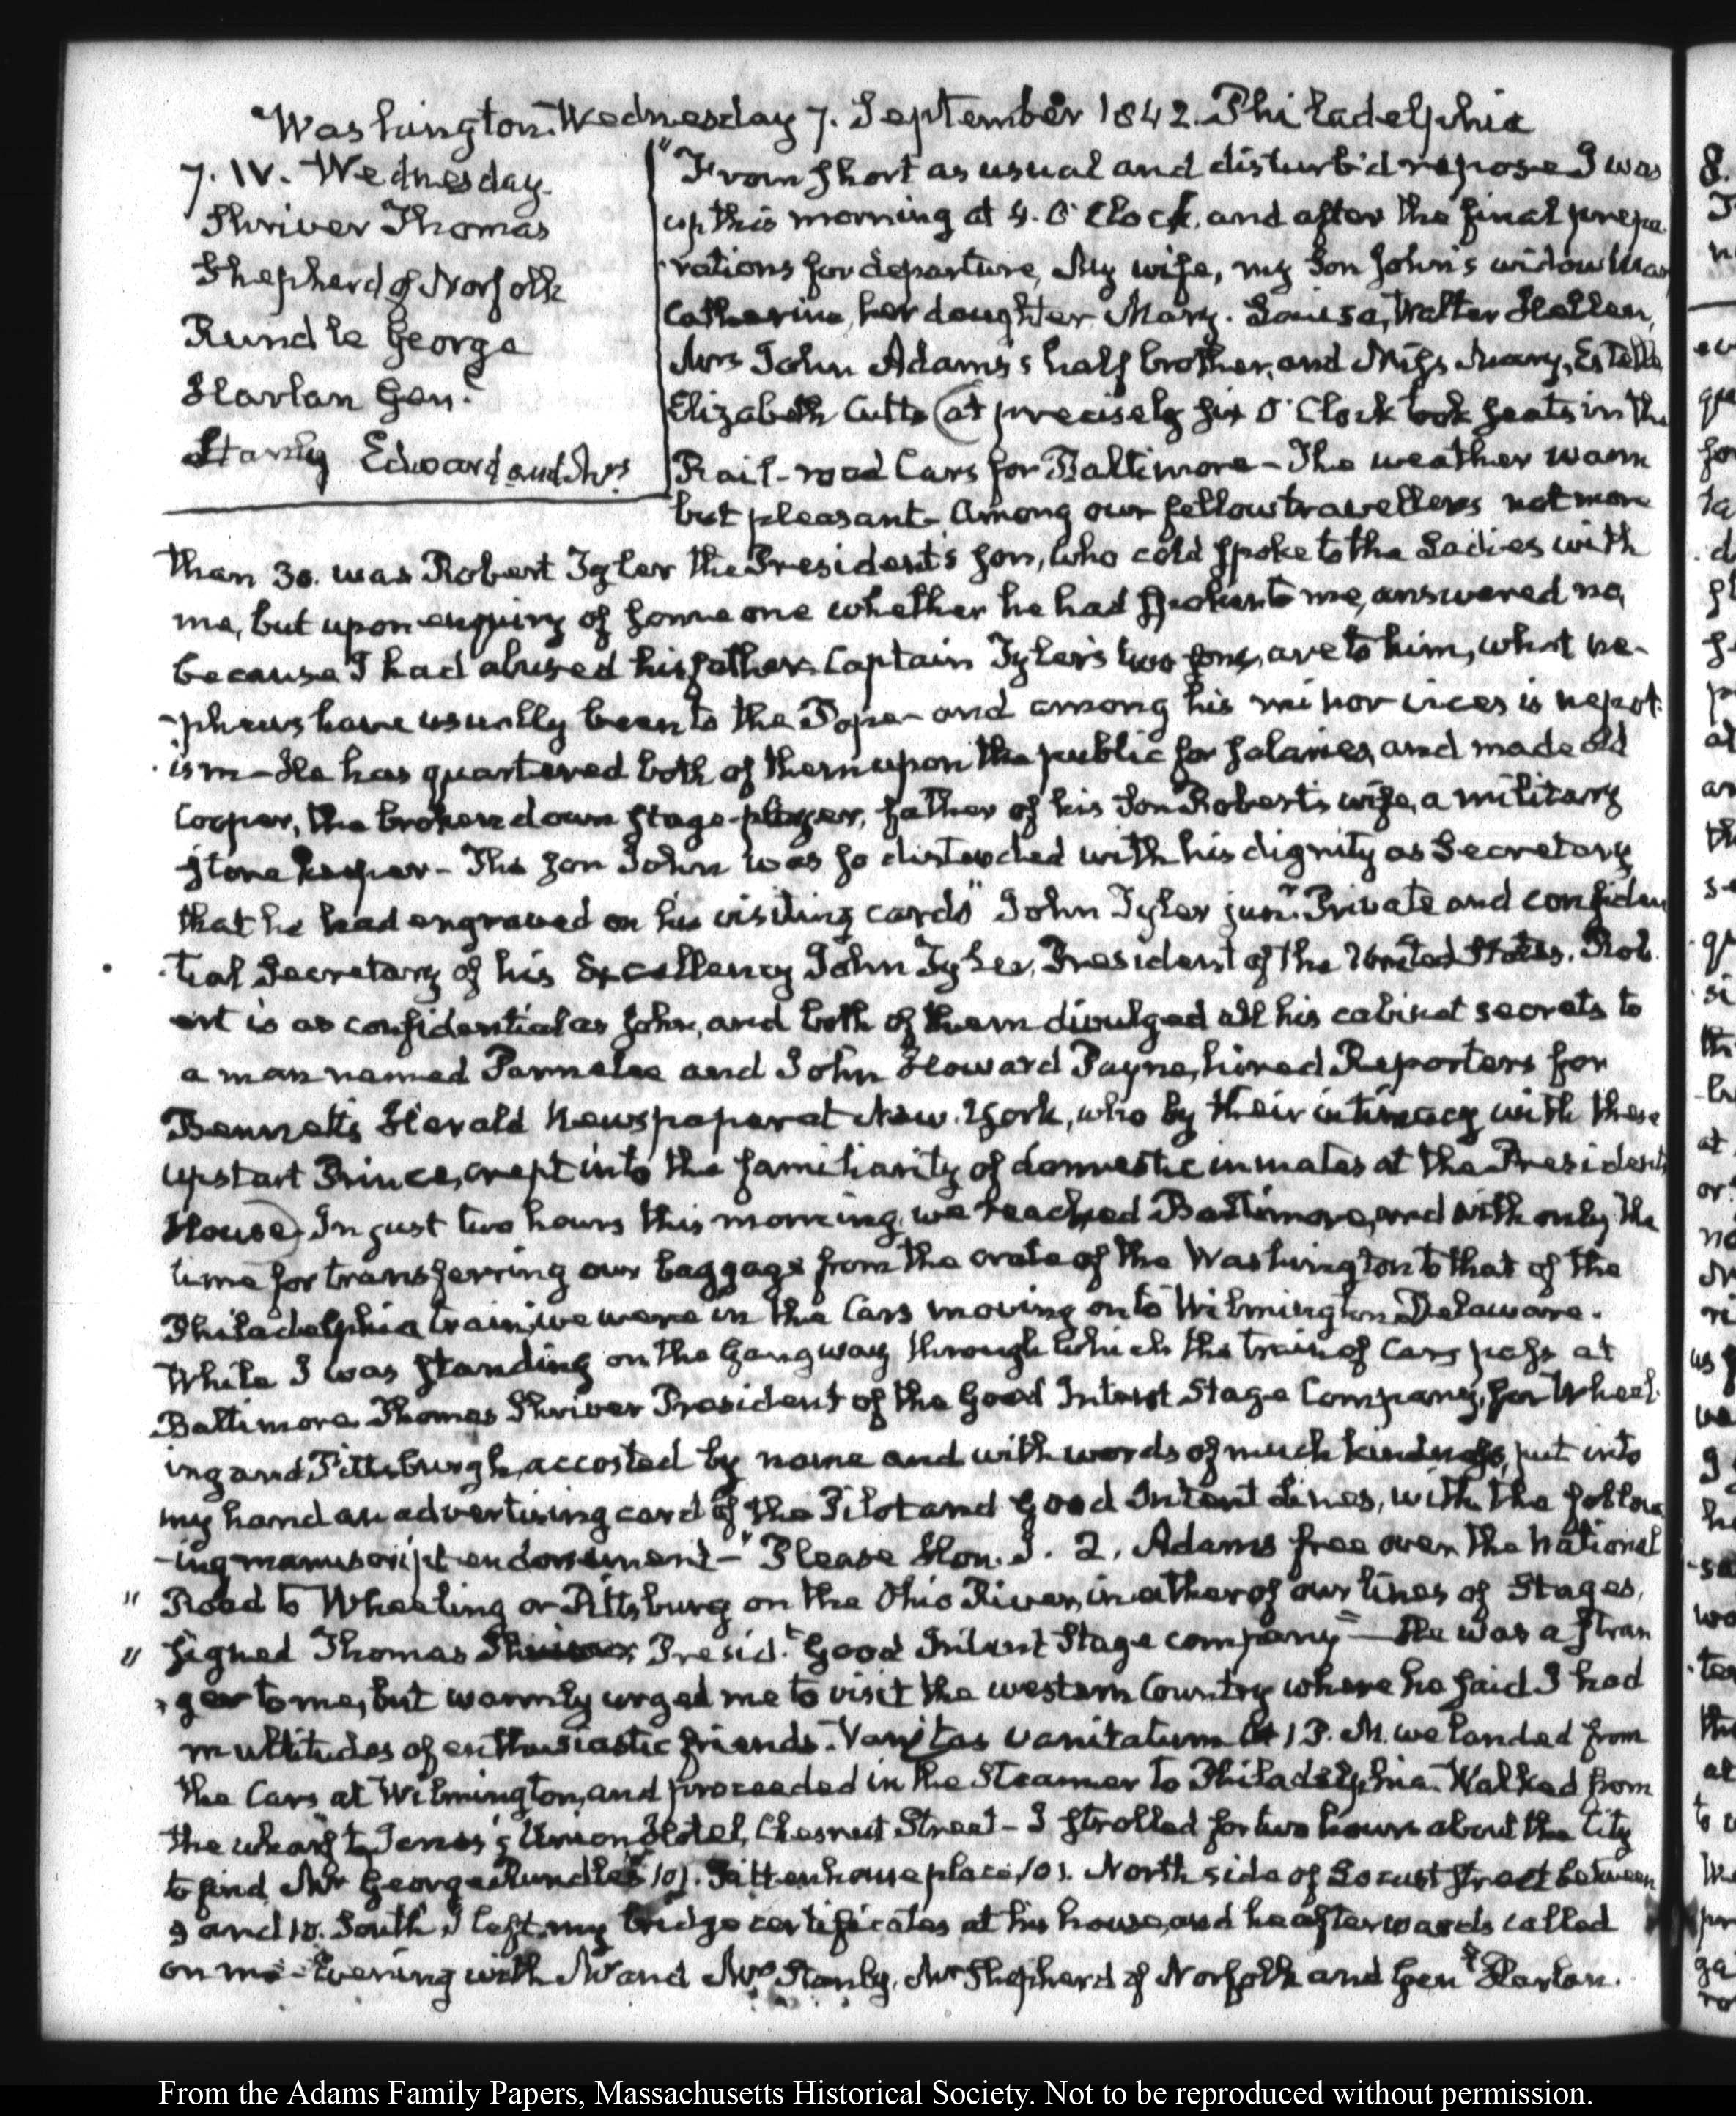 Washington. Wednesday 7. September 1842. Philadelphia
7. IV. Wednesday.
Shriver Thomas
Shepherd of Norfolk
Rundle George
Harlan Genl.
Stanly Edward and Mrs
From short as usual and disturb'd repose I was
up this morning at 4. O'Clock, and after the final prepa
rations for departure, My wife, my Son John's widow Mary
Catherine, her daughter Mary. Louisa, Walter Hellen,
Mrs John Adams's half brother, and Miss Mary, Estelle
Elizabeth Cutts (at precisely six O'Clock took seats in the
Rail-road Cars for Baltimore – The weather warm
but pleasant – Among our fellow travellers not more
than 30. was Robert Tyler the President's son, who cold spoke to the Ladies with
me, but upon enquiry of some one whether he had spoken to me, answered no,
because I had abused his father. Captain Tyler's two sons, are to him, what ne-
-phews have usually been to the Pope – and among his minor vices is nepot-
ism – He has quartered both of them upon the public for salaries, and made old
Cooper, the broken down stage-player, father of his Son Robert's wife, a military
storekeeper – The son John was so distended with his dignity as Secretary
that he had engraved on his visiting cards "John Tyler junr. Private and confiden
tial Secretary of his Excellency John Tyler, President of the United States. Rob-
ert is as confidential as John, and both of them divulged all his cabinet secrets to
a man named Parmelee and John Howard Payne, hired Reporters for
Bennett's Herald Newspaper at New-York, who by their intimacy with these
upstart Princes, crept into the familiarity of domestic inmates at the President's
House) In just two hours this morning, we reached Baltimore, and with only the
time for transferring our baggage from the crate of the Washington to that of the
Philadelphia train, we were in the Cars moving on to Wilmington Delaware.
While I was standing on the gangway through which the train of Cars pass at
Baltimore Thomas Shriver President of the Good Intent Stage Company, for Wheel-
ing and Pittsburgh, accosted by name and with words of much kindness, put into
my hand an advertising card of the Pilot and Good Intent Lines, with the follow
-ing manuscript endorsement – "Please Hon. J. Q. Adams free over the National
" Road to Wheeling or Pittsburg on the Ohio River, in either of our lines of Stages,
" signed Thomas Shriver, Presidt. Good Intent Stage company" – He was a stran
ger to me, but warmly urged me to visit the western Country where he said I had
multitudes of enthusiastic friends. Vanitas vanitatum At 1 P. M. we landed from
the Cars at Wilmington, and proceeded in the Steamer to Philadelphia. Walked from
the wharf to Jones's Union Hotel, Chesnut Street – I strolled for two hours about the City
to find Mr George Rundle's 101. Rittenhouse place, 101. North side of Locust street between
9 and 10. South. I left my bridge certificates at his house, and he afterwards called
on me – Evening with Mr and Mrs Stanly, Mr Shepherd of Norfolk and Genl. Harlan.
From the Adams Family Papers, Massachusetts Historical Society. Not to be reproduced without permission.